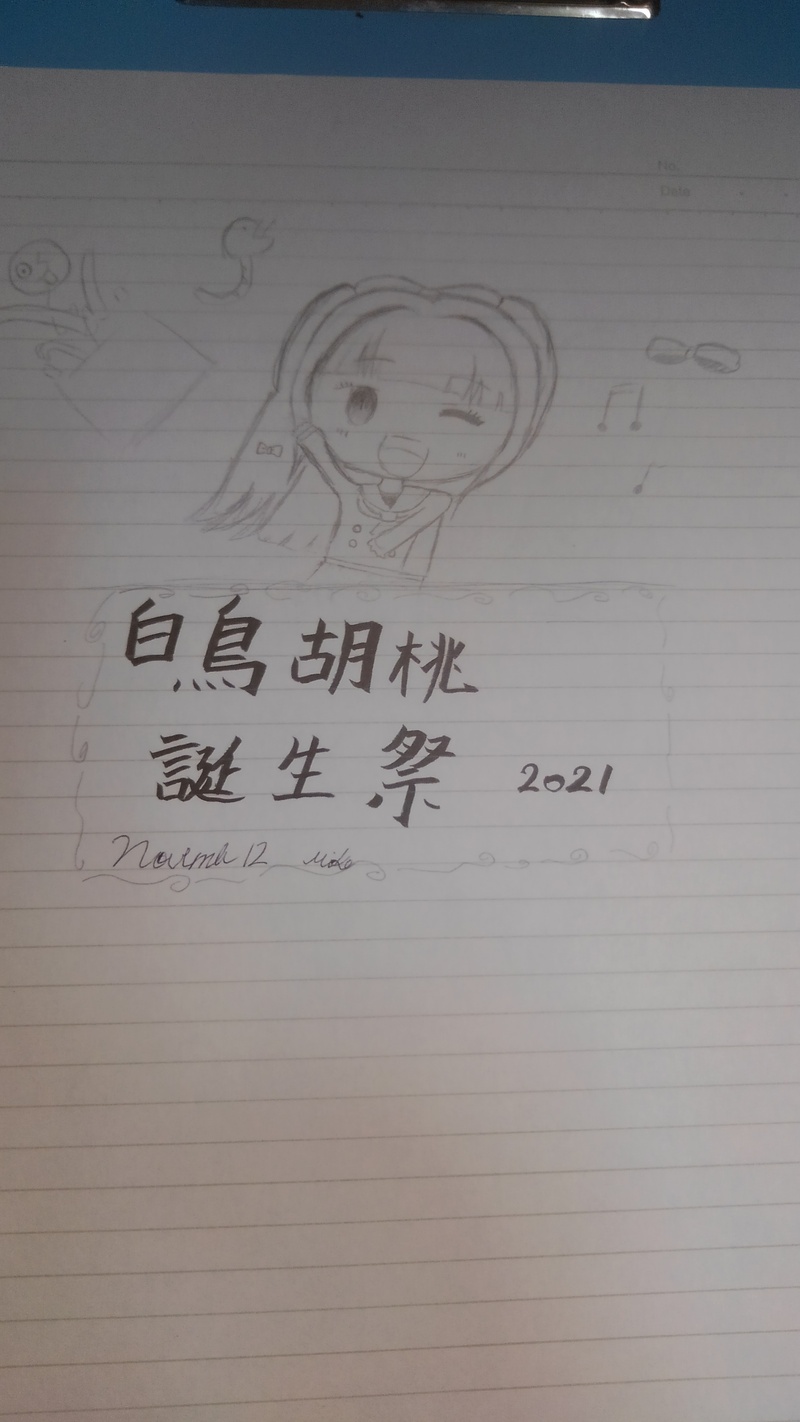 No.
Date
白鳥胡桃
誕生祭 2021
12